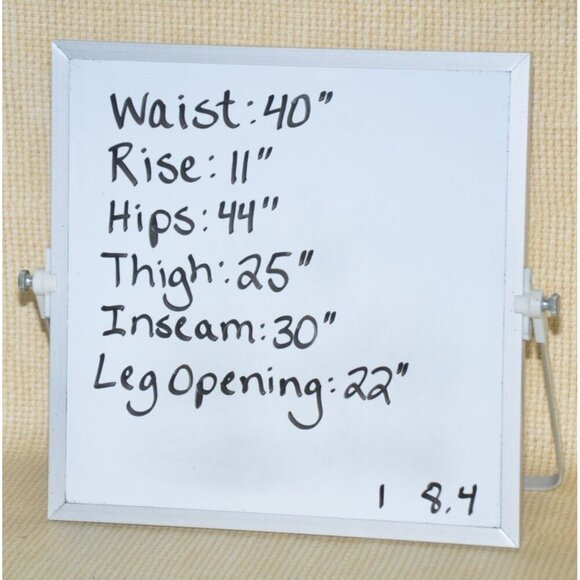 Waist: 40"
Rise: 11"
Hips: 44"
Thigh: 25"
Inseam: 30"
Leg Opening: 22"
1 8.4